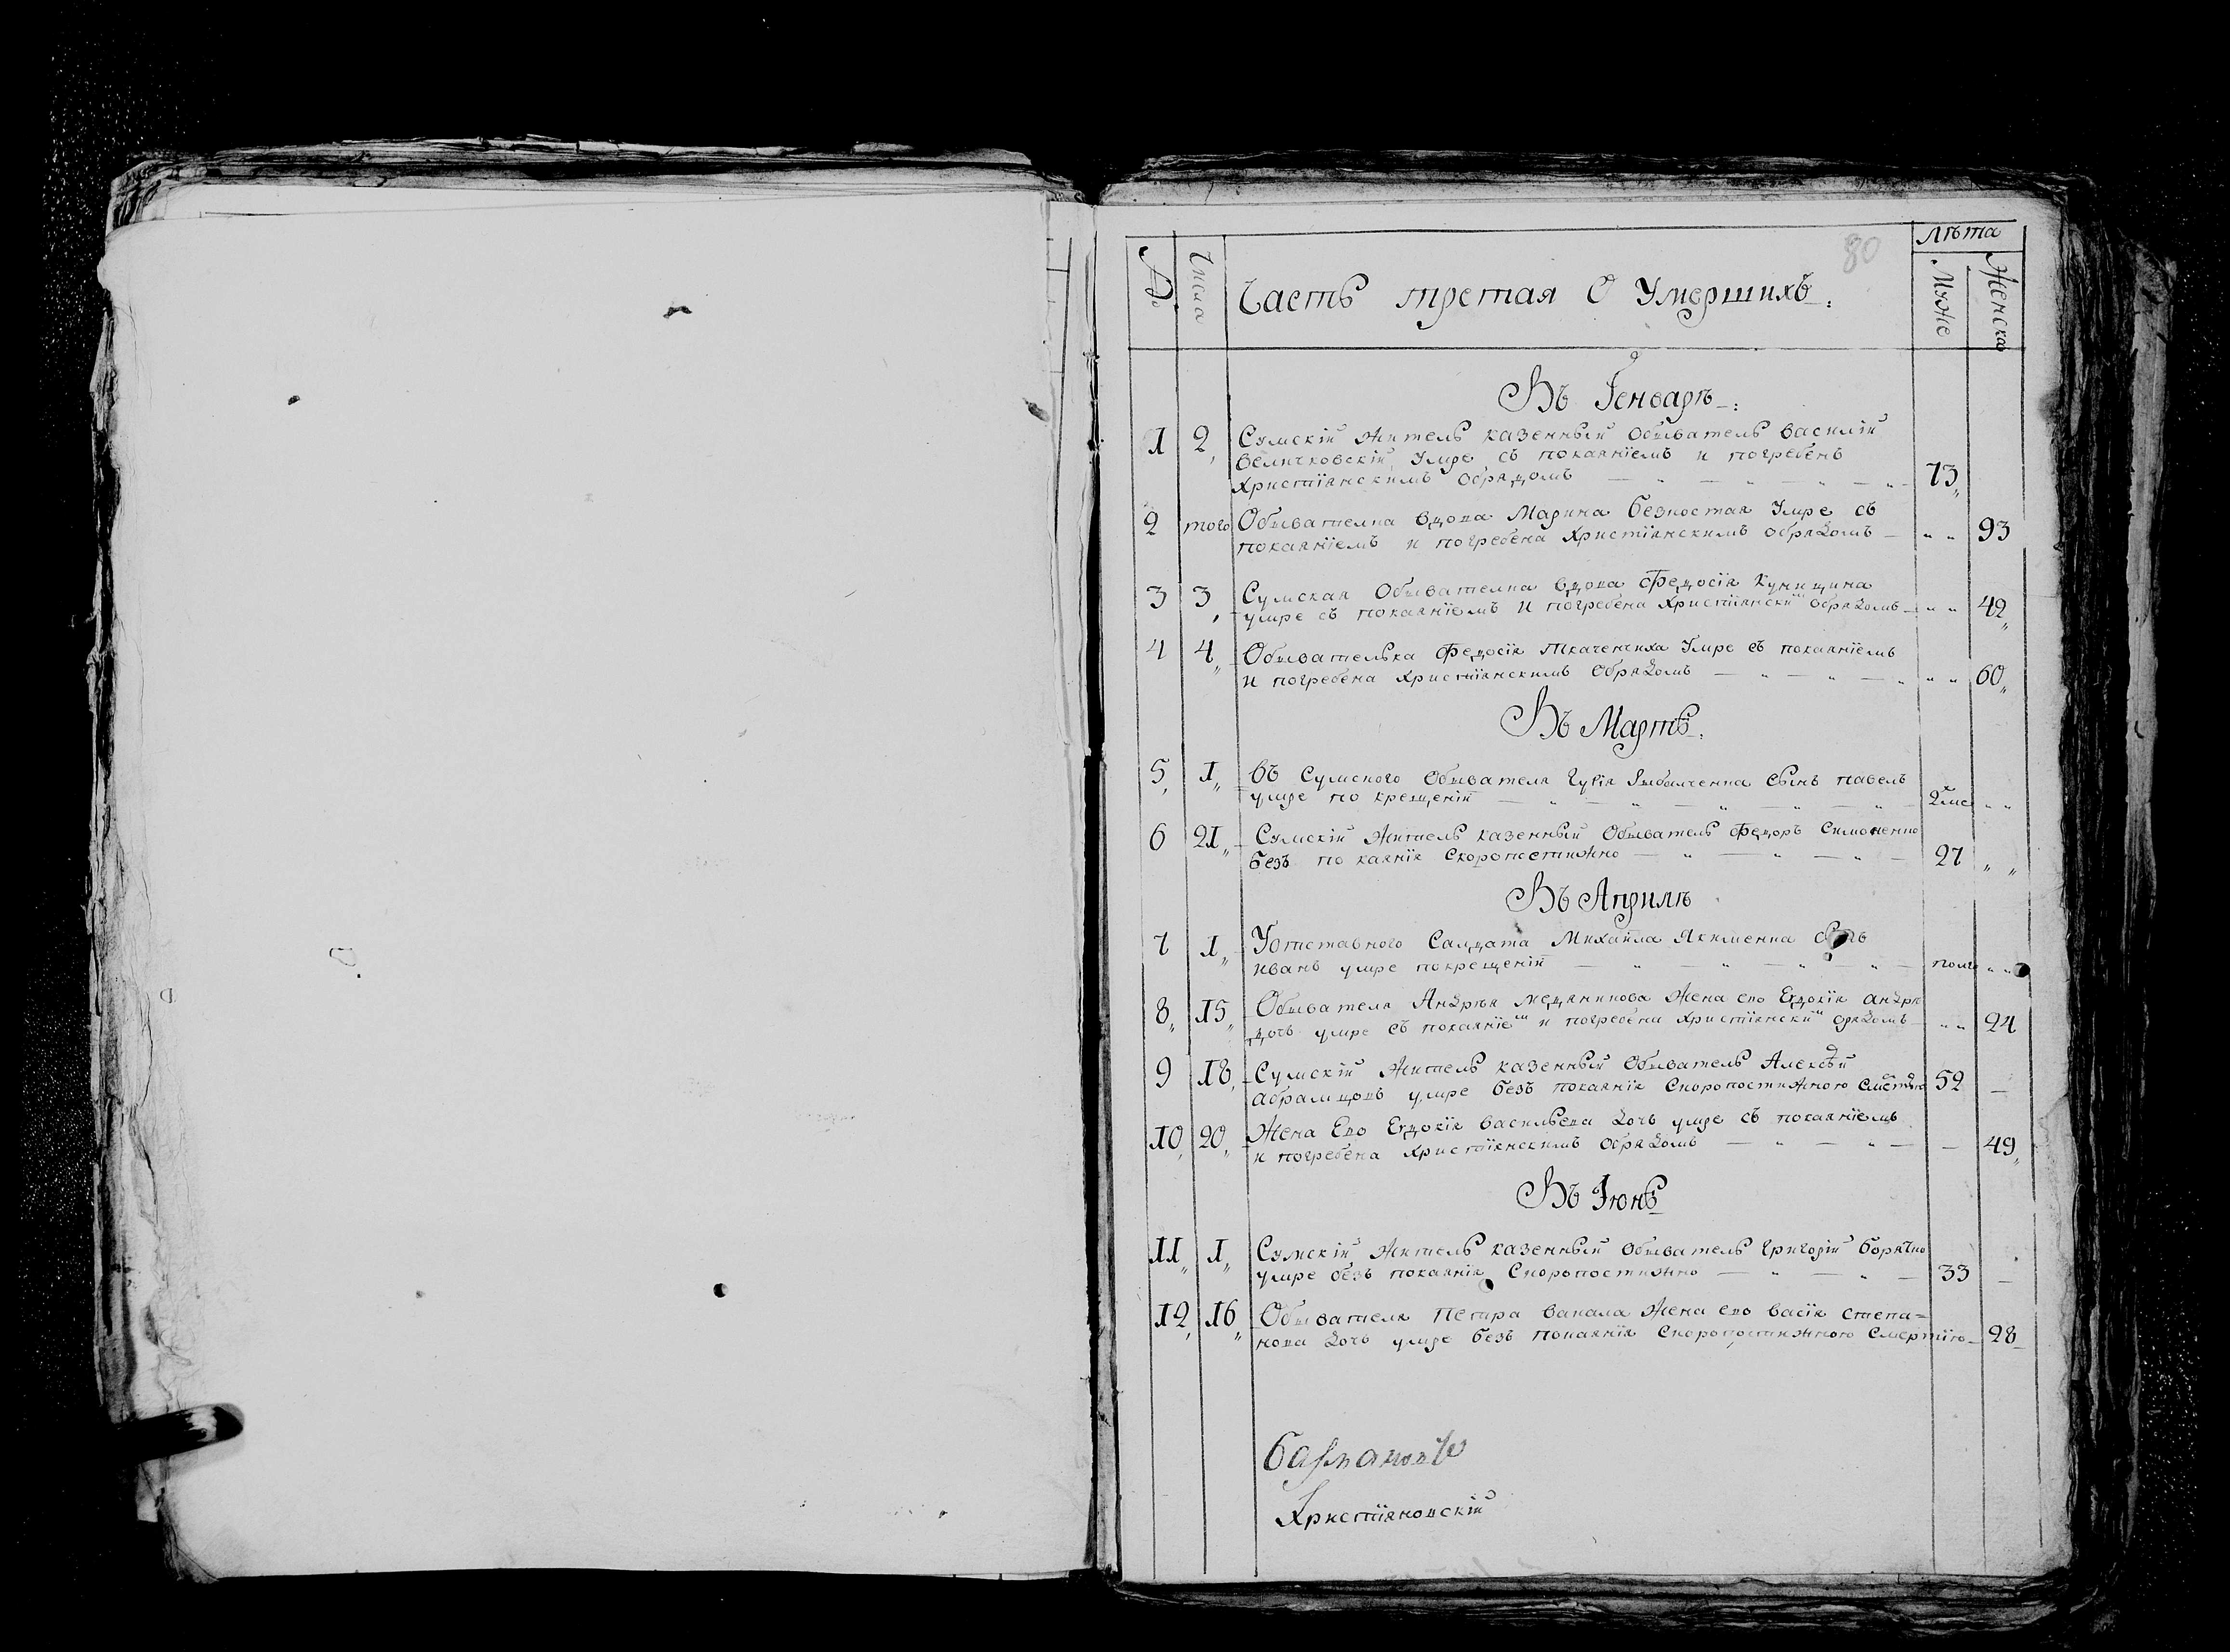 80
Лѣта
№
Числа
Часть третая О Умершихъ:
Муже
Женска
Въ Генварѣ:
1 2 Сумскій житель казенный обыватель василій
величковскій, Умре съ покаянїемъ и погребенъ
христїянскимъ обрядомъ 73
2 того Обывателка вдова Марина безкостая Умре съ
покаянїемъ и погребена христїянскимъ обрядомъ 93
3 3 Сумская Обывателка вдова Федосїя куницина
умре съ покаянїемъ и погребена христїянским обрядомъ 42
4 4 Обывателька Федосїя ткаченчиха Умре съ покаянїемъ
и погребена христїянскимъ обрядомъ 60
Въ Мартѣ.
5 1 въ Сумского Обывателя Гурїя сынъ павелъ
умре по крещенїй 2 мс
6 21 Сумскій житель казенный Обыватель Федоръ Симоненко
безъ по каянїя Скоропостижно 27
Въ Априлѣ
7 1 Уотставного Салдата Михайла Якименка
иванъ умре покрещенїй полч
8 15 Обывателя Андрѣя медяникова жена ево Евдокїя андрѣ
дочь умре съ покаянїем и погребена христїянским орядомъ 24
9 18 Сумскій житель казенный Обыватель Алексѣй
абрамцовъ умре безъ покаянїя Скоропостижною 52
10 20 Жена Ево Евдокїя васильева дочь умре съ покаянїемъ
и погребена христїянскимъ обрядомъ 49
Въ Іюнѣ
11 1 Сумскій житель казенный обыватель григорій
умре безъ покаянїя Скоропостижно 33
12 16 Обывателя Петра вакала жена ево васїя степа=
нова дочь умре безъ покаянїя Скоропостижною Смертїю 28
Христїяновскїй